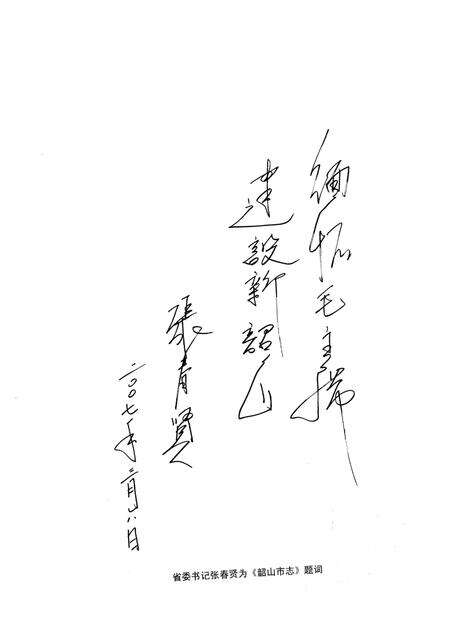 缅怀毛主席
建設新韶山
張春贤
二〇〇七年二月八日
省委书记张春贤为《韶山市志》题词